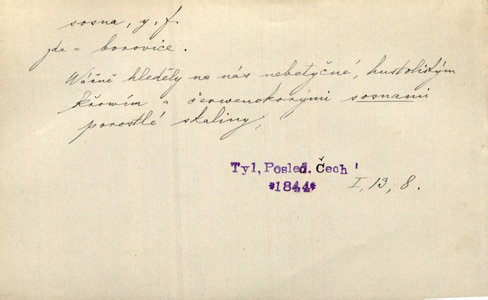 sosna, y, f.
jde = borovice.
Wážně hleděly na nás nebetyčné, hustolistým
křowím a červenokorými sosnami
porostlé skaliny,
Tyl, Posled. Čech
*1844* I, 13, 8.